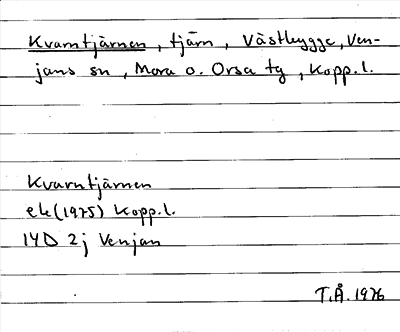 Kvarntjärnen, tjärn, Västbygge, Ven-
jans sn, Mora o. Orsa tg, Kopp.l.
Kvarntjärnen
ek (1975) Kopp.l.
14D 2j Venjan
T.Å. 1976